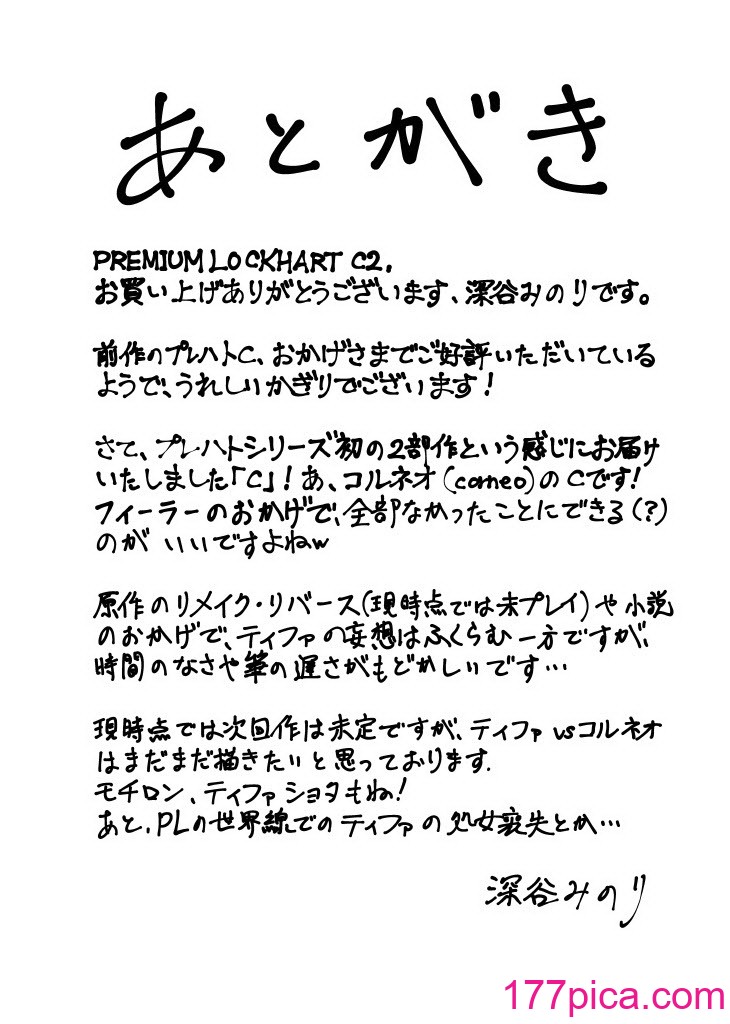 あとがき
PREMIUM LOCKHART C2.
お買い上げありがとうございます、深谷みのりです。
前作のプレハトC、おかげさまでご好評いただいている
ようで、うれしいかぎりでございます！
さて、プレハトシリーズ初の2部作という感じにお届け
いたしました「C」！あ、コルネオ(corneo)のCです！
フィーラーのおかげで、全部なかったことにできる(?)
のが いいですよねw
原作のリメイク・リバース(現時点では未プレイ)や小説
のおかげで、ティファの妄想はふくらむ一方ですが、
時間のなさや筆の遅さがもどかしいです…
現時点では次回作は未定ですが、ティファvsコルネオ
はまだまだ描きたいと思っております.
モチロン、ティファショタもね！
あと、PLの世界線でのティファの処女喪失とか…
深谷みのり
177pica.com